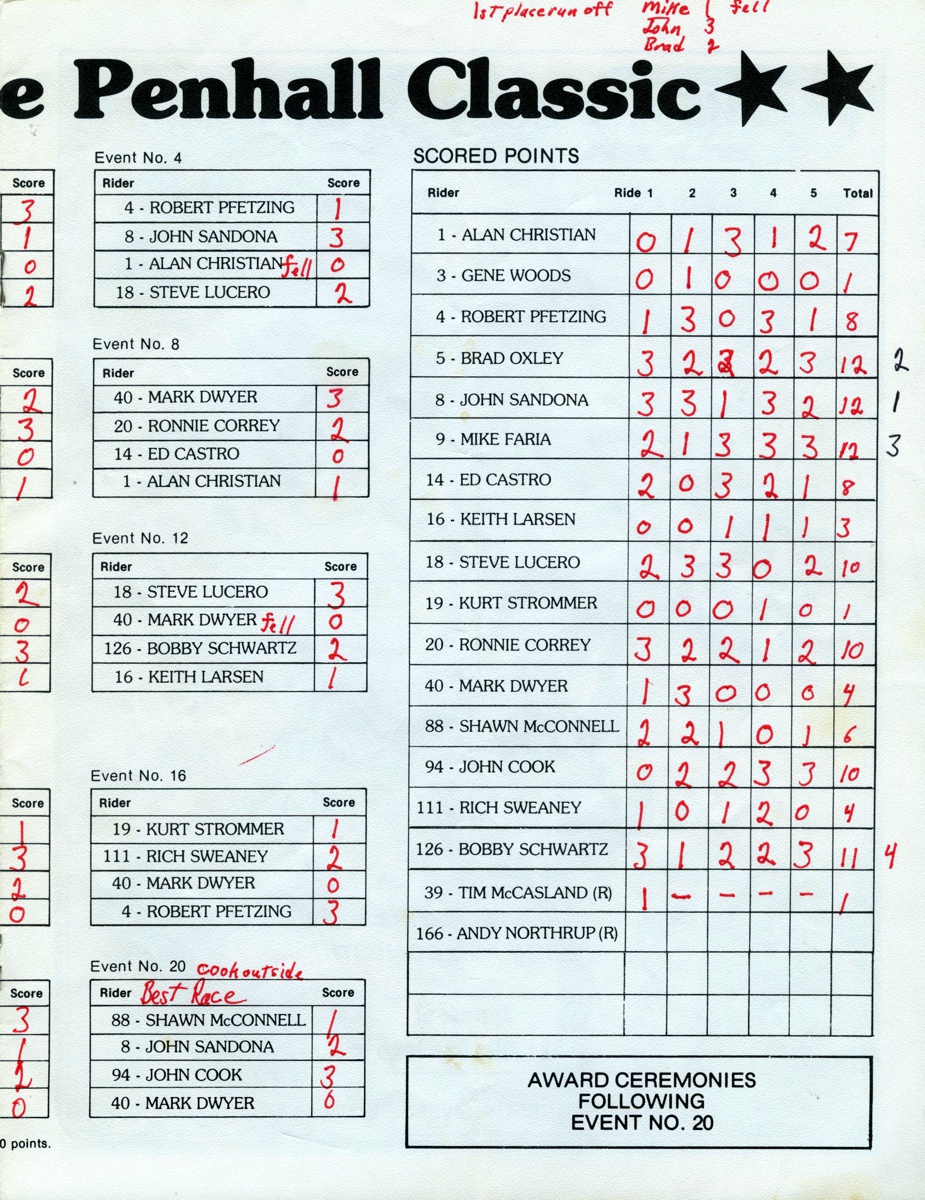 1st place run off Mike 1 fell
John 3
Brad 2
e Penhall Classic
Score
3
1
0
2
Score
2
3
0
1
Score
2
0
3
1
Score
1
3
2
0
Score
3
1
2
0
0 points.
Event No. 4
Rider Score
4 - ROBERT PFETZING 1
8 - JOHN SANDONA 3
1 - ALAN CHRISTIAN fell 0
18 - STEVE LUCERO 2
Event No. 8
Rider Score
40 - MARK DWYER 3
20 - RONNIE CORREY 2
14 - ED CASTRO 0
1 - ALAN CHRISTIAN 1
Event No. 12
Rider Score
18 - STEVE LUCERO 3
40 - MARK DWYER fell 0
126 - BOBBY SCHWARTZ 2
16 - KEITH LARSEN 1
Event No. 16
Rider Score
19 - KURT STROMMER 1
111 - RICH SWEANEY 2
40 - MARK DWYER 0
4 - ROBERT PFETZING 3
Event No. 20 Cook outside
Rider Best Race Score
88 - SHAWN McCONNELL 1
8 - JOHN SANDONA 2
94 - JOHN COOK 3
40 - MARK DWYER 0
SCORED POINTS
Rider Ride 1 2 3 4 5 Total
1 - ALAN CHRISTIAN 0 1 3 1 2 7
3 - GENE WOODS 0 1 0 0 0 1
4 - ROBERT PFETZING 1 3 0 3 1 8
5 - BRAD OXLEY 3 2 2 2 3 12 2
8 - JOHN SANDONA 3 3 1 3 2 12 1
9 - MIKE FARIA 2 1 3 3 3 12 3
14 - ED CASTRO 2 0 3 2 1 8
16 - KEITH LARSEN 0 0 1 1 1 3
18 - STEVE LUCERO 2 3 3 0 2 10
19 - KURT STROMMER 0 0 0 1 0 1
20 - RONNIE CORREY 3 2 2 1 2 10
40 - MARK DWYER 1 3 0 0 0 4
88 - SHAWN McCONNELL 2 2 1 0 1 6
94 - JOHN COOK 0 2 2 3 3 10
111 - RICH SWEANEY 1 0 1 2 0 4
126 - BOBBY SCHWARTZ 3 1 2 2 3 11 4
39 - TIM McCASLAND (R) 1 - - - - 1
166 - ANDY NORTHRUP (R)
AWARD CEREMONIES
FOLLOWING
EVENT NO. 20